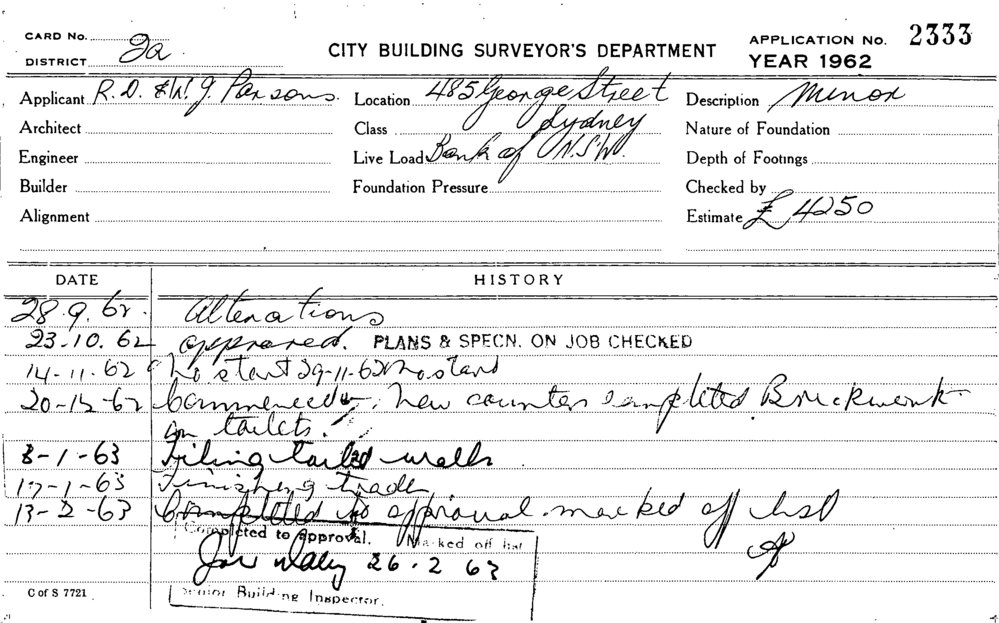 CARD No.
DISTRICT 2a
CITY BUILDING SURVEYOR'S DEPARTMENT
APPLICATION No. 2333
YEAR 1962
Applicant R. D. & W. J. Parsons.
Location 485 George Street
Sydney
Description Minor
Architect
Class
Nature of Foundation
Engineer
Live Load Bank of N.S.W.
Depth of Footings
Builder
Foundation Pressure
Checked by
Alignment
Estimate £ 4250
DATE HISTORY
28.9.62. Alterations
23-10.62 approved. PLANS & SPECN. ON JOB CHECKED
14-11.62 No start 29-11-62 No start
20-12-62 Commenced New counter completed. Brickwork
in toilets.
8-1-63 Tiling toilet walls
17-1-63 Finishing trades
13-2-63 Completed to approval. marked off list
Completed to approval. Marked off list
26.2.63
Senior Building Inspector.
C of S 7721